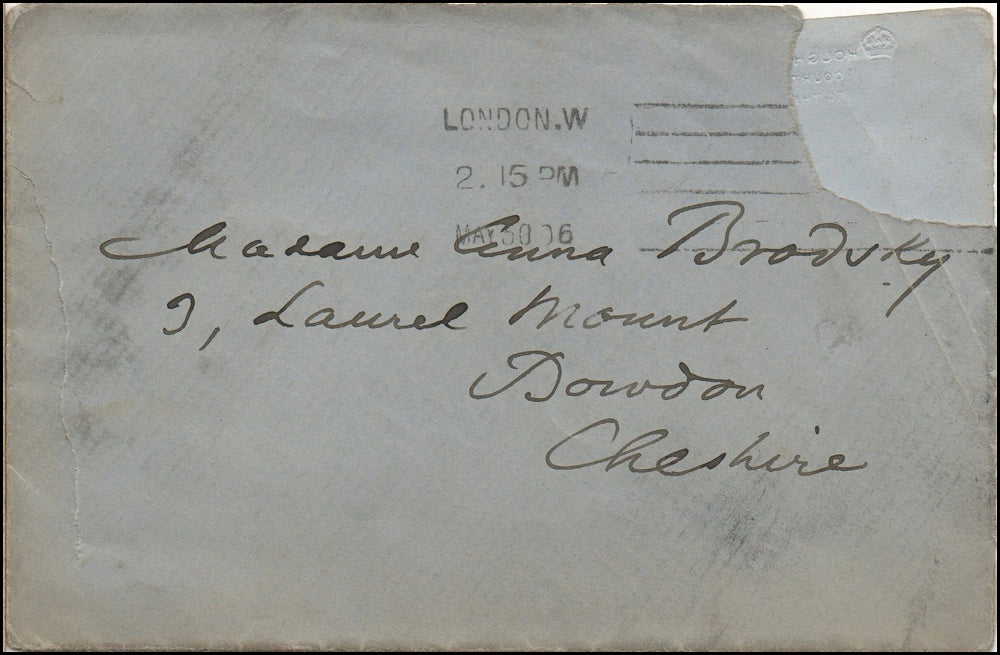 LONDON.W
2. 15 PM
MAY 30 06
Madame Anna Brodsky
3, Laurel Mount
Bowdon
Cheshire